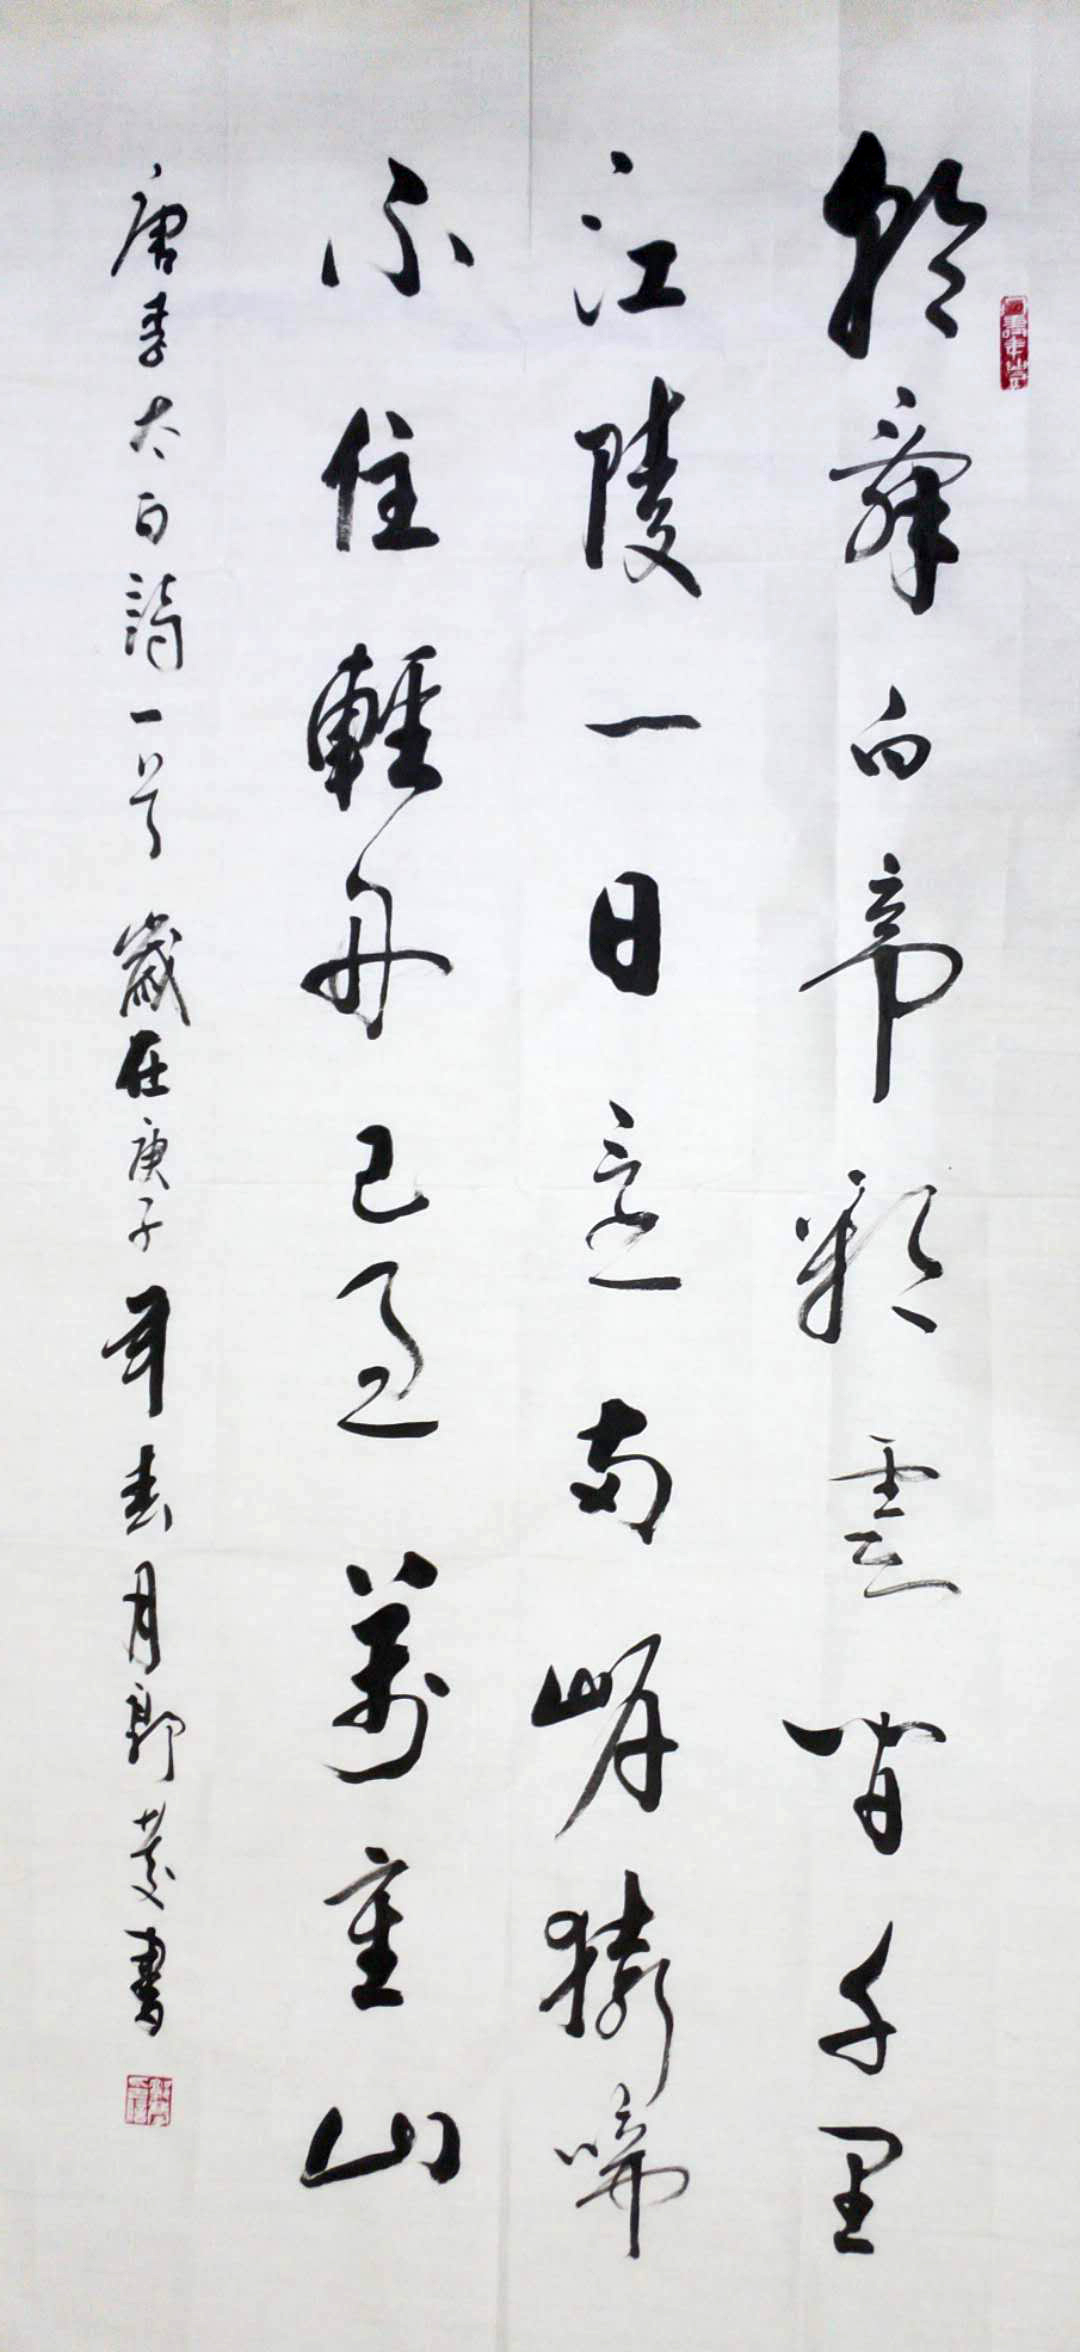 朝辭白帝彩雲間千里
江陵一日還兩岸猿啼
不住輕舟已過萬重山
唐李太白詩一首 歲在庚子年春月郭書